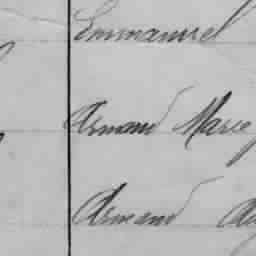 Emmanuel
Armand Marie
Armand